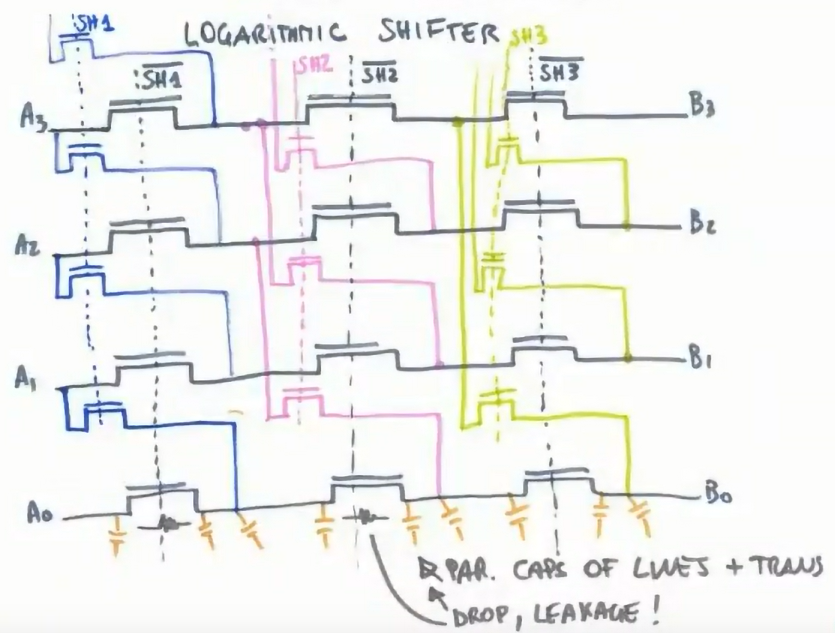 LOGARITHMIC SHIFTER
SH1
SH2
SH3
S̅H̅1̅
S̅H̅2̅
S̅H̅3̅
A3
B3
A2
B2
A1
B1
A0
B0
PAR. CAPS OF LINES + TRANS
DROP, LEAKAGE!